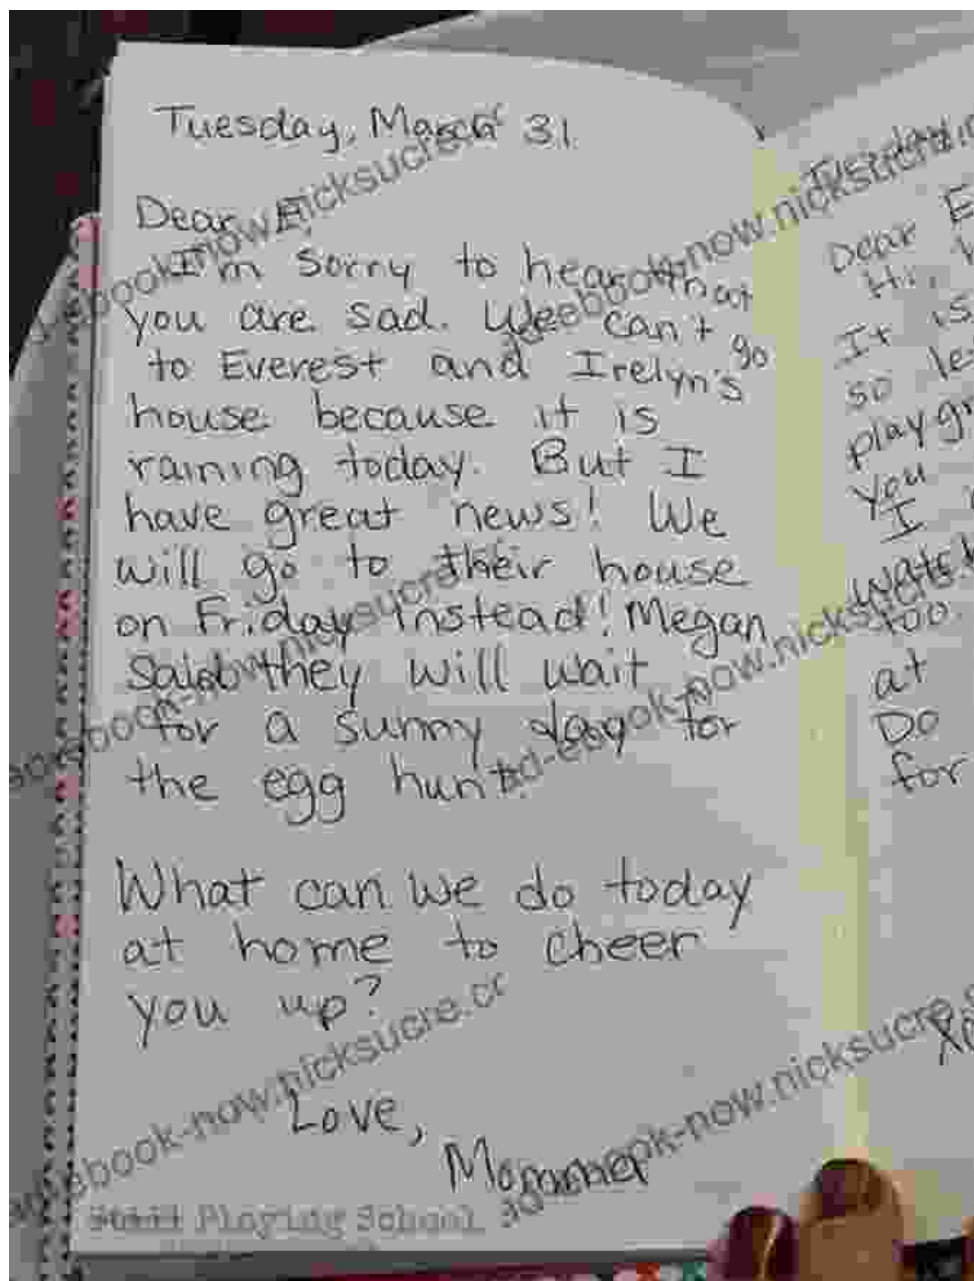 Tuesday, March 31
Dear E,
I'm sorry to hear that
you are sad. We can't go
to Everest and Irelyn's
house because it is
raining today. But I
have great news! We
will go to their house
on Friday instead! Megan
said they will wait
for a sunny day for
the egg hunt.
What can we do today
at home to cheer
you up?
Love,
Playing School
Dear E
Hi,
It is
so
you
I
too.
at
Do
for
ebook-now.nicksucre.co